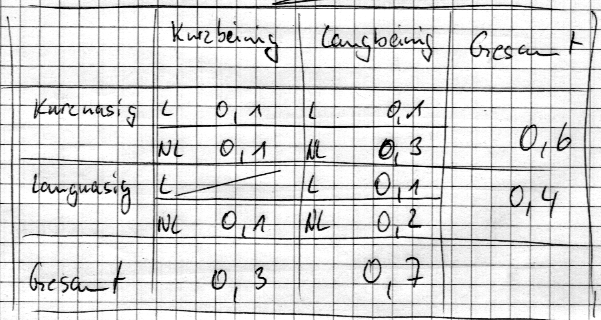 Kurzbeinig Langbeinig Gesamt
Kurznasig L 0,1 L 0,1
NL 0,1 NL 0,3 0,6
Langnasig L L 0,1 0,4
NL 0,1 NL 0,2
Gesamt 0,3 0,7